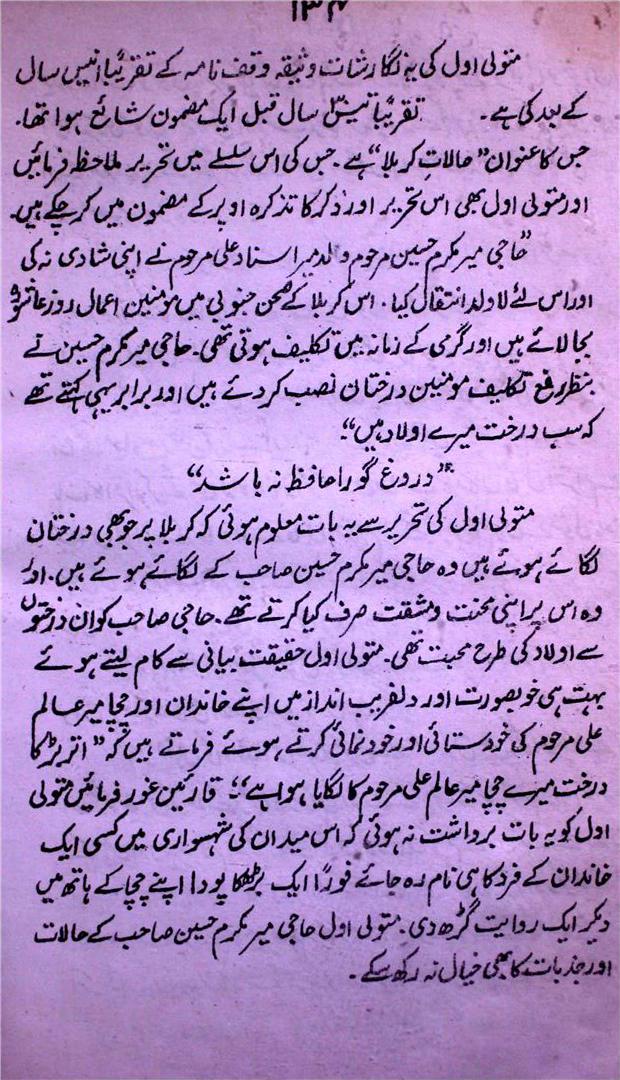 ۱۳۴
متولی اول کی یہ نگارشات وثیقہ وقف نامہ کے تقریباً انیس سال
کے بعد کی ہے۔ تقریباً تیس سال قبل ایک مضمون شائع ہوا تھا۔
جس کا عنوان "حالاتِ کربلا" ہے۔ جس کی اس سلسلے میں تحریر ملاحظہ فرمائیں
اور متولی اول بھی اس تحریر اور ذکر کا تذکرہ اوپر کے مضمون میں کرچکے ہیں۔
"حاجی میر مکرم حسین مرحوم ولد میر استاد علی مرحوم نے اپنی شادی نہ کی
اور اس لئے لاولد انتقال کیا۔ اس کربلا کے صحن جنوبی میں مومنین اعمال روز عاشورہ
بجالاتے ہیں اور گرمی کے زمانہ میں تکلیف ہوتی تھی۔ حاجی میر مکرم حسین نے
بنظر رفع تکلیف مومنین درختان نصب کردئے ہیں اور برابر یہی کہتے تھے
کہ سب درخت میرے اولاد ہیں"۔
"دروغ گو را حافظہ نہ باشد"
متولی اول کی تحریر سے یہ بات معلوم ہوئی کہ کربلا پر جو بھی درختان
لگائے ہوئے ہیں وہ حاجی میر مکرم حسین صاحب کے لگائے ہوئے ہیں۔ اور
وہ اس پر اپنی محنت ومشقت صرف کیا کرتے تھے۔ حاجی صاحب کو ان درختوں
سے اولاد کی طرح محبت تھی۔ متولی اول حقیقت بیانی سے کام لیتے ہوئے
بہت ہی خوبصورت اور دلفریب انداز میں اپنے خاندان اور چچا میر عالم
علی مرحوم کی خودستائی اور خود نمائی کرتے ہوئے فرماتے ہیں کہ "اتر بڑ کا
درخت میرے چچا میر عالم علی مرحوم کا لگایا ہوا ہے"۔ قارئین غور فرمائیں متولی
اول کو یہ بات برداشت نہ ہوئی کہ اس میدان کی شہسواری میں کسی ایک
خاندان کے فرد کا ہی نام رہ جائے فوراً ایک بڑ کا پودا اپنے چچا کے ہاتھ میں
دیکر ایک روایت گڑھ دی۔ متولی اول حاجی میر مکرم حسین صاحب کے حالات
اور جذبات کا بھی خیال نہ رکھ سکے۔